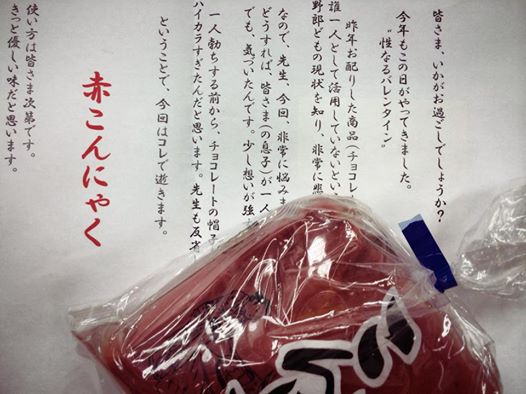 皆さま、いかがお過ごしでしょうか?
今年もこの日がやってきました。
"性なるバレンタイン"
昨年お配りした商品(チョコレー
誰一人として活用していないとい
野郎どもの現状を知り、非常に悲
なので、先生、今回、非常に悩みま
どうすれば、皆さま(の息子)が一人
でも、気づいたんです。少し想いが強
一人勃ちする前から、チョコレートの帽子
ハイカラすぎたんだと思います。先生も反省
ということで、今回はコレで逝きます。
赤こんにゃく
使い方は皆さま次第です。
きっと優しい味だと思います。